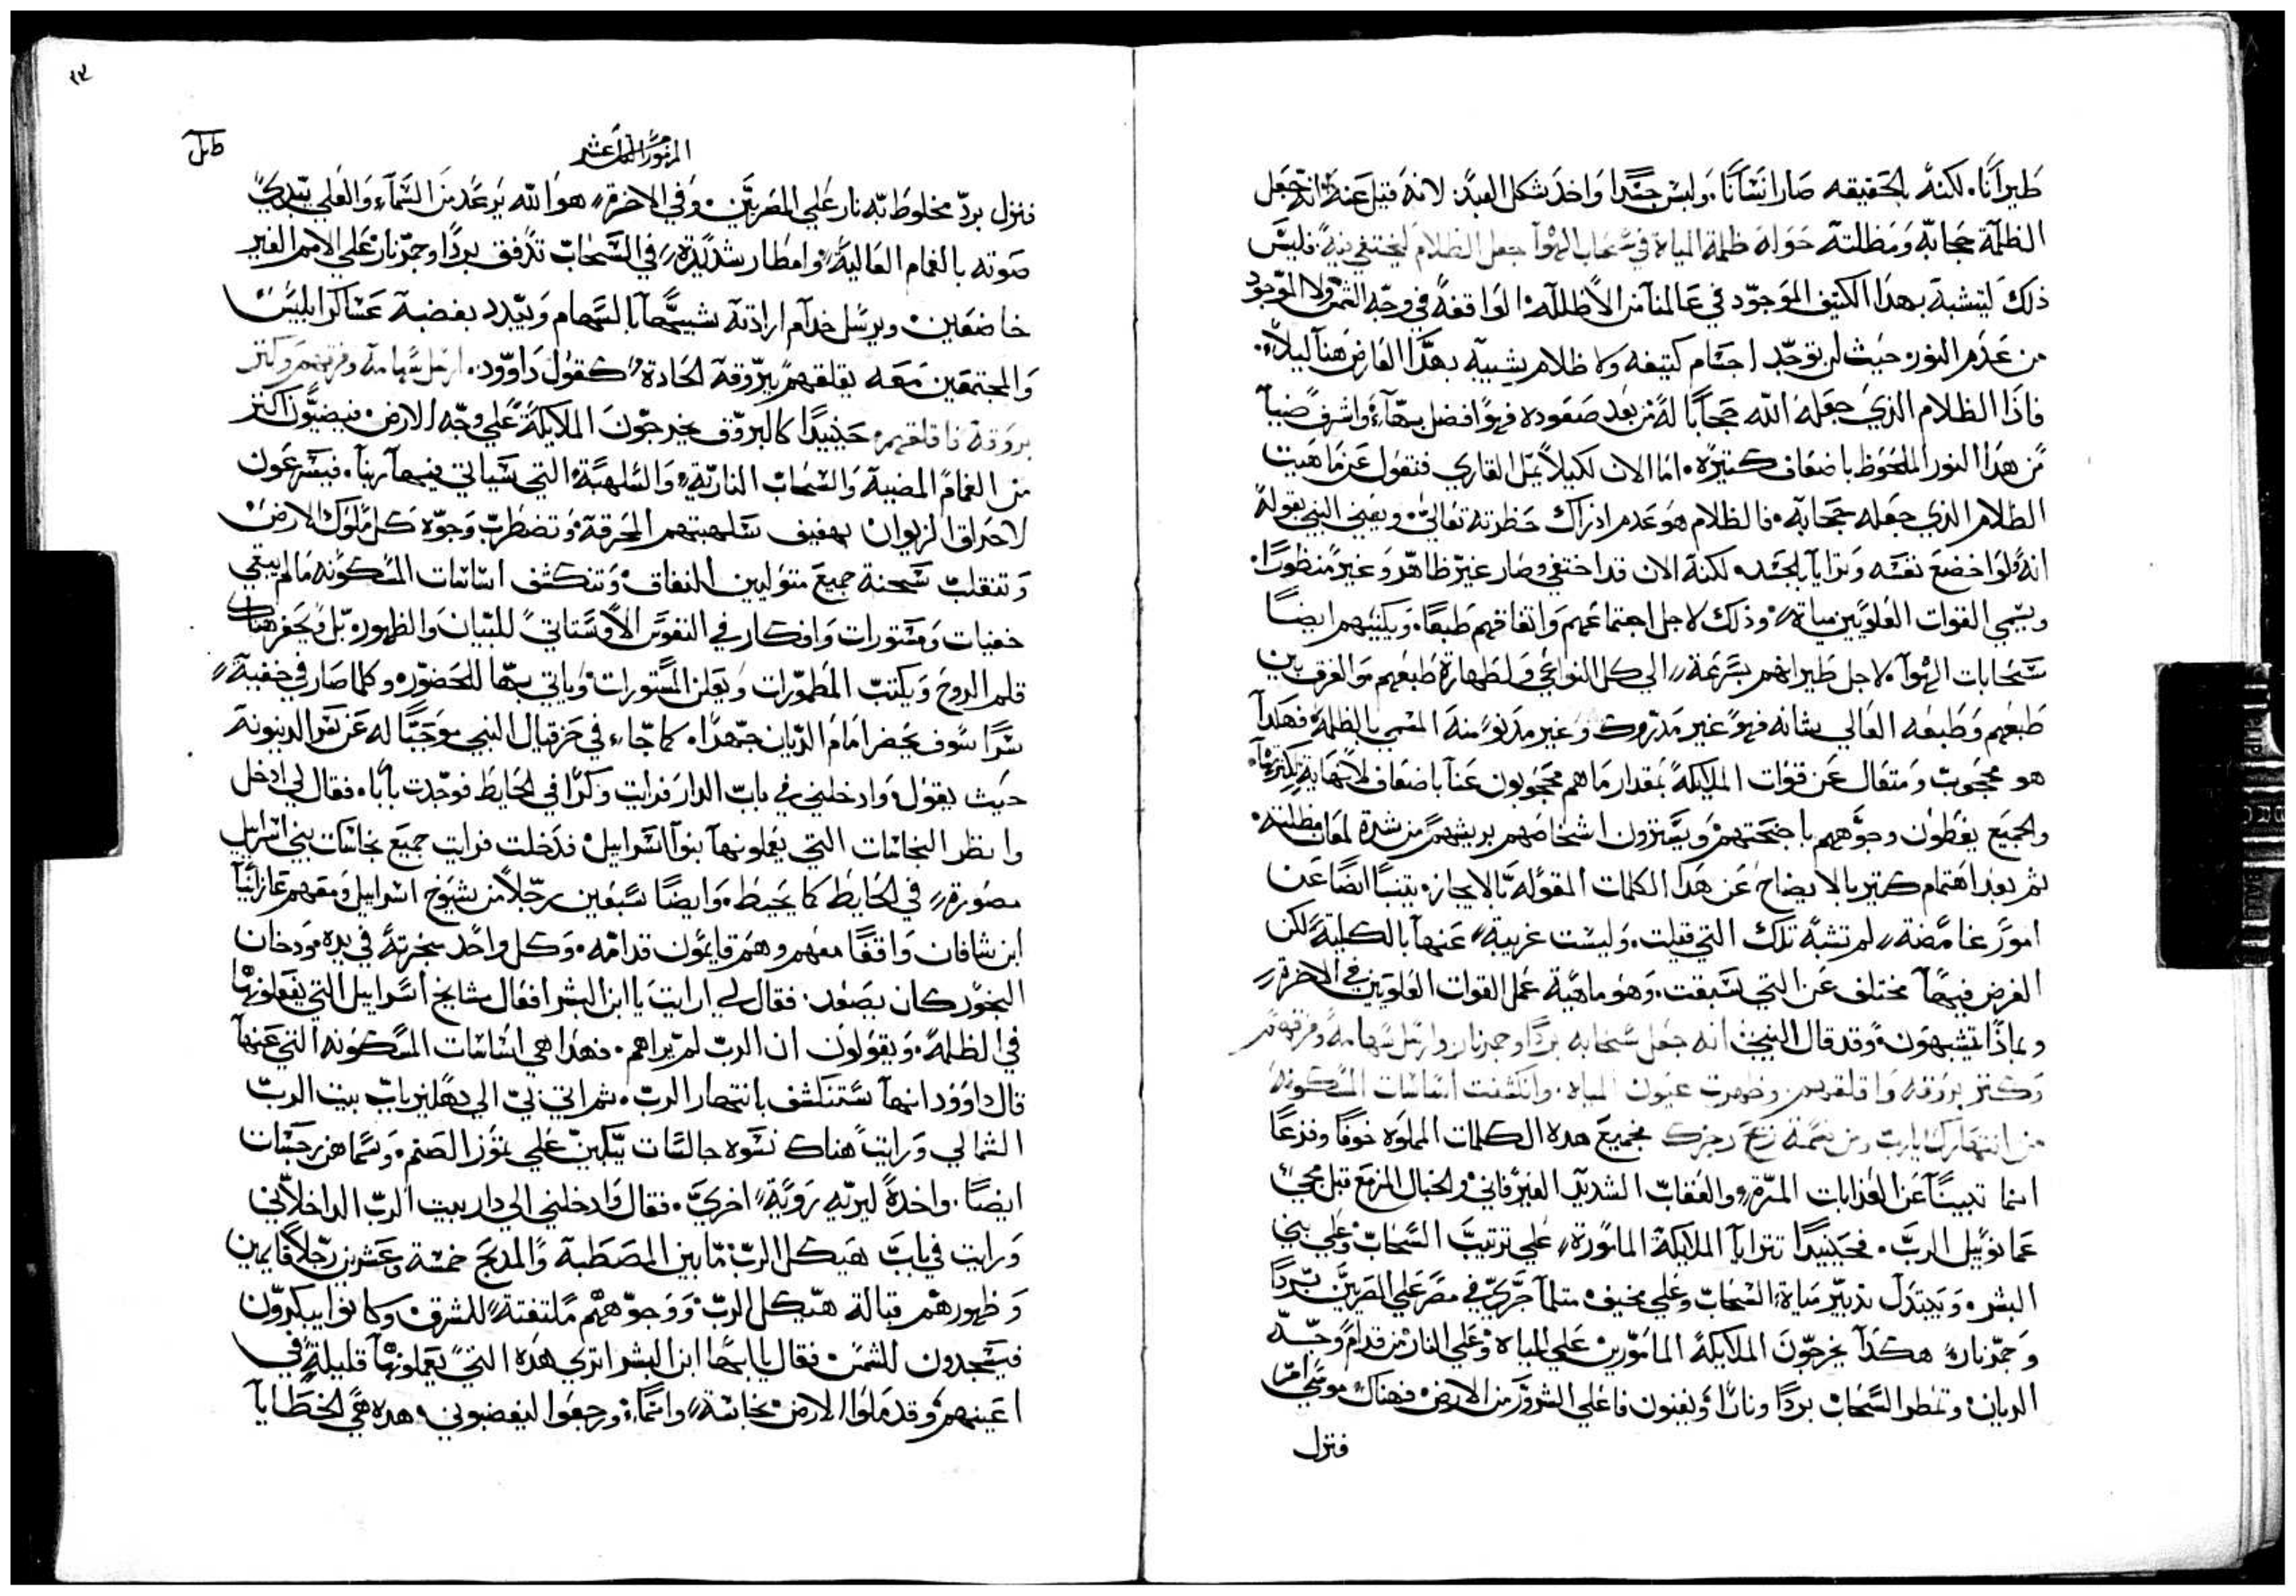 طيرانًا. لكنه بالحقيقه صار انسانًا، وليس جسدًا واخد شكل العبد: لانه قيل عنه انه جعل
الظلمة حجابه ومظلته حوله ظلمة المياة في سحاب الهوآ جعل الظلام ليختفي فيه. فليس
ذلك ليتشبة بهدا الكتيف الموجود في عالمنا من الاظلاله الواقعة في وجه الشمس ولا الموجود
من عدم النور، حيث لم توجد اجسام كتيفه ولا ظلام يشبيه بهدا العارض هنا ليلاً.
فاذا الظلام الذي جعله الله حجابًا له من بعد صعوده فهو افضل بهآء واشرف ضيآ
من هدا النور الملحوظ باضعاف كتيرة. اما الان لكيلا يمل القاري فنقول عن ماهيت
الظلام الدي جعله حجابه. فالظلام هو عدم ادراك حظرته تعالي، ويعني النبي بقوله
انه ولو اخضع نفسه وترايا بالجسد لكنه الان قد اختفي وصار غير ظاهر وغير منظورًا.
ويسمي القوات العلويين مياة، وذلك لاجل اجتماعهم واتفاقهم طبعًا. ويكنيهم ايضًا
سحابات الهوآ. لاجل طيرانهم بسرعة الي كل النواحي ولطهارة طبعهم والفرق بين
طبعهم وطبعه العالي بشانه فهو غير مدروك وغير مدنو منه المسمي بالظلمة فهكدا
هو محجوب ومتعال عن قوات الملايكة بمقدار ما هم محجوبون عنا باضعاف لا نهاية لكترتها.
والجميع يغطون وجوههم باجنحتهم ويستترون اشخاصهم بريشهم من شدة لمعان مظلته.
تم بعد اهتمام كتير بالايضاح عن هدا الكلمات المقوله بالايجاز يتنبا ايضًا عن
امور غامضة لم تشبه تلك التي قيلت. وليست غريبة عنها بالكلية لكن
الغرض فيها مختلف عن التي سبقت. وهو ماهية عمل القوات العلويين في الاخرة
وبماذا يتشبهون. وقد قال النبي انه جعل سحابه بردًا وجمرنار وارسل سهامه وفرقهم
وكتر بروقه واقلقهم. وظهرت عيون المياه. وانكشفت اساسات المسكونه
من انتهارك يارب ومن نسمة ريح رجزك فجميع هده الكلمات المملوه خوفًا وفزعًا
انما تبينًا عن العذابات المرة والعقاب الشديد الغير فاني والخبال المزمع قبل مجي
عمانوييل الرب. فحينيدًا تترايا الملايكة المامورة علي ترتيب السحاب وعلي بني
البشر. ويبتدل تدبير مياة السحاب وعلي مخيف متلما جري في مصر علي المصريين بردًا
وجمرنار هكدا يخرجون الملايكة المامورين علي المياه وعلي النار من قدام وجه
الديان وتمطر السحاب بردًا ونارًا ويفنون فاعلي الشرور من الارض فهناك موسي امر
فنزل
١٣
المزمور السابع عشر
فنزل برد مخلوط به نار علي المصريين. وفي الاخرة هو الله يرعد من السمآء والعلي يبدي
صوته بالغمام العالية وامطار شديدة في السحاب تدفق بردًا وجمر نار علي الامم الغير
خاضعين. ويرسل خدام ارادته شبيهًا بالسهام ويبدد بغضبه عساكر ابليس
والمجتمعين معه يقلقهم ببروقه الحادة كقول داوود. ارسل سهامه وفرقهم وكتر
بروقه فاقلقهم. حينيدًا كالبروق يخرجون الملايكة علي وجه الارض فيضيون اكتر
من الغمام المضية والسحاب النارية والملهبة التي سياتي فيها ربنا. فيسرعون
لاحتراق الزيوان بهفيف سلهبتهم المحرقة وتضطرب وجوه كل ملوك الارض
وتنقلب سحنة جميع متوليين النفاق. وتنكشف اساسات المسكونه مالم يبقي
خفيات ومستورات وافكار في النفوس الا وستاتي للبيان والظهور بل ويحفر هناك
قلم الروح ويكتب المطمورات ويعلن المستورات وياتي بها للحضور وكلما صار في خفية
سرًا سوف يحضر امام الديان جهرًا. كما جآء في حزقيال النبي موجبًا له عن سر الدينونة
حيث يقول وادخلني في باب الدار فرايت وكرًا في الحايط فوجدت بابًا. فقال لي ادخل
وانظر النجاسات التي يعلونها بنوا اسراييل فدخلت فرايت جميع نجاسات بني اسراييل
مصورة في الحايط كما يحيط. وايضًا سبعين رجلاً من شيوخ اسراييل ومعهم عازانيا
ابن شافان واقفًا معهم وهم قايمون قدامه. وكل واحد مجرته في يده ودخان
البخور كان يصعد. فقال لي ارايت يا ابن البشر افعال مشايخ اسراييل التي يفعلونها
في الظلمة. ويقولون ان الرب لم يراهم. فهدا هي اساسات المسكونه التي عنها
قال داوود انها ستنكشف بانتهار الرب. تم اتي بي الي دهليز باب بيت الرب
الشمالي ورايت هناك نسوه جالسات يبكين علي تموز الصنم. وسماهن رجسات
ايضًا. واخدة ليريه روية اخري. فقال وادخلني الي دار بيت الرب الداخلاني
ورايت في باب هيكل الرب ما بين المصطبة والمدبح خمسة وعشرين رجلاً قايمين
وظهورهم قبالة هيكل الرب ووجوههم ملتفتة للشرق وكانوا يبكرون
فيسجدون للشمس فقال يا ايها ابن البشر اتري هده التي يعملونها قليلة في
اعينهم وقد ملوا الارض نجاسة واتماء ورجعوا ليغضبوني. هده هي الخطايا